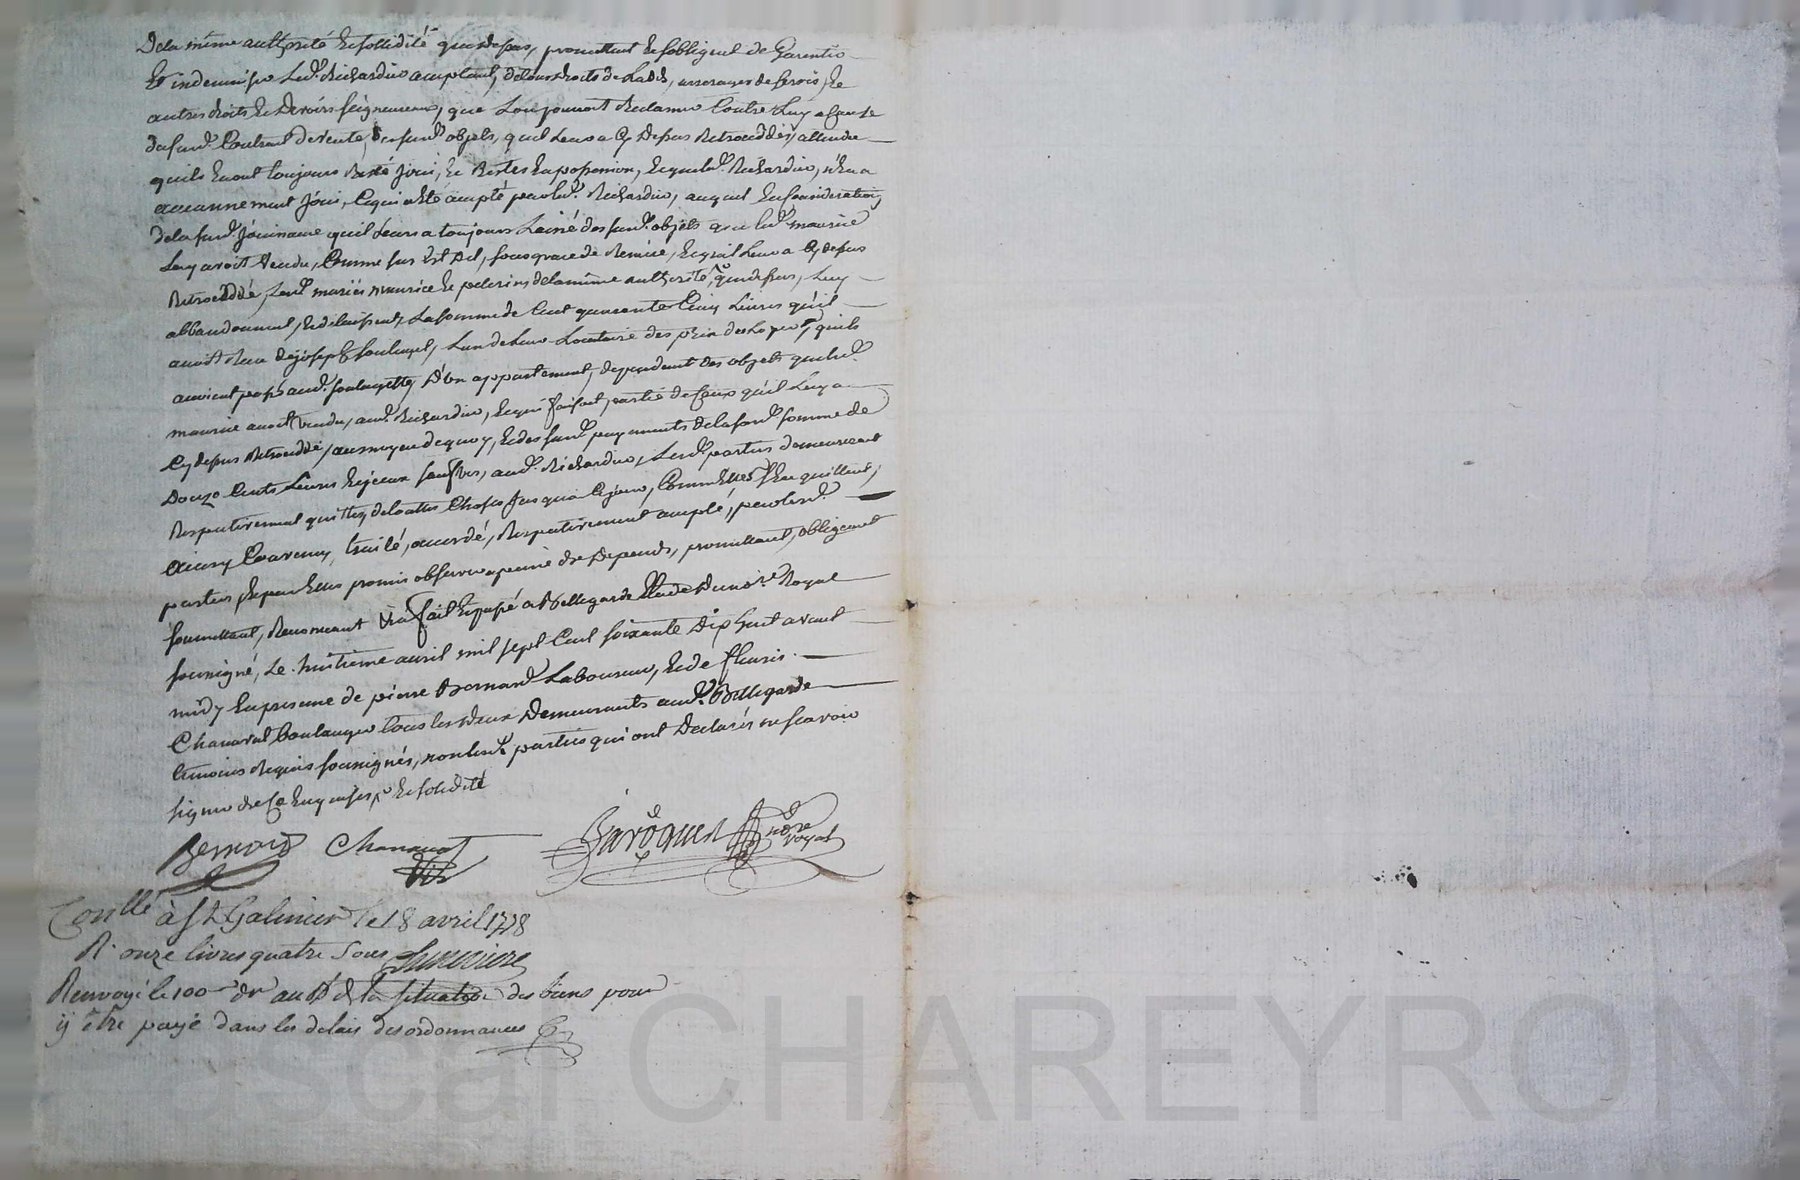 De la même authorité et sollidité que dessus, promettent et s'obligent de Garentir
Et indemniser led. Richardier acceptant, de tous droits de Lods, arrerages de servis, Et
autres droits Et Devoirs seigneuriaux, que Lon pourroit Reclamer Contre Luy a cause
dususd. Contract de vente, desusd. objets, quil leur a Cy Dessus Retroceddés, attendu
quils En ont toujours Resté Joüi, Et Restés En possession, Et que led. Richardier, n'En a
aucunnement Jöui, Ce qui a Eté accepté par led. Richardier, auquel En Consideration
de la susd. Jöuissance quil Leurs a toujours Laissé des susd. objets que led. maurice
Luy avoit Vendu, Comme sus Est Dit, sous grace de Remeré, Et quil Leur a Cy dessus
Retroceddé, Lesd. mariés maurice Et pelerin de la même authorité, que dessus, Luy
abbandonnent, Et delaissent, La somme de Cent quarante Cinq Livres qu'il
avoit Recu de joseph, L'un de Leur Locataire des prix du Loyer, quils
avoient passé aud. D'un appartement, dependent des objets que led.
maurice avoit Vendu, aud. Richardier, Et qui faisoit, partie de Ceux qu'il Luy a
Cy dessus Retroceddé, au moyen de quoy, Et des susd. payements de la susd. somme de
Douze Cents Livres aud. Richardier, Lesd. parties demeureront
Respectivement quittes, de touttes Choses Jusqu'a Ce jour, Comm'Elles s'En quittent,
Ainsy Convenu, traité, accordé, Respectivement accepté, par lesd.
parties, Et par Elles promis observer a peine de Depends, promettant, obligeant
soumettant, Renonceant fait Et passé a Bellegarde Etude Du no.re Royal
soussigné, Le huitieme avril mil sept Cent soixante Dix huit avant
midy En presence de pierre Bernard Laboureur, Et de fleuris
Chanavat boulanger tous les deux Demeurants aud. Bellegarde
temoins Requis soussignés, non lesd. parties qui ont Declarés ne scavoir
signer de ce Enquises, Et solidité
Bernard Chanavat no.re royal
Con.llé à St Galmier le 18 avril 1778
R. onze livres quatre sous
Renvoyé le 100.e dr au B de la situation des biens pour
ÿ être payé dans les delais des ordonnances
Pascal CHAREYRON